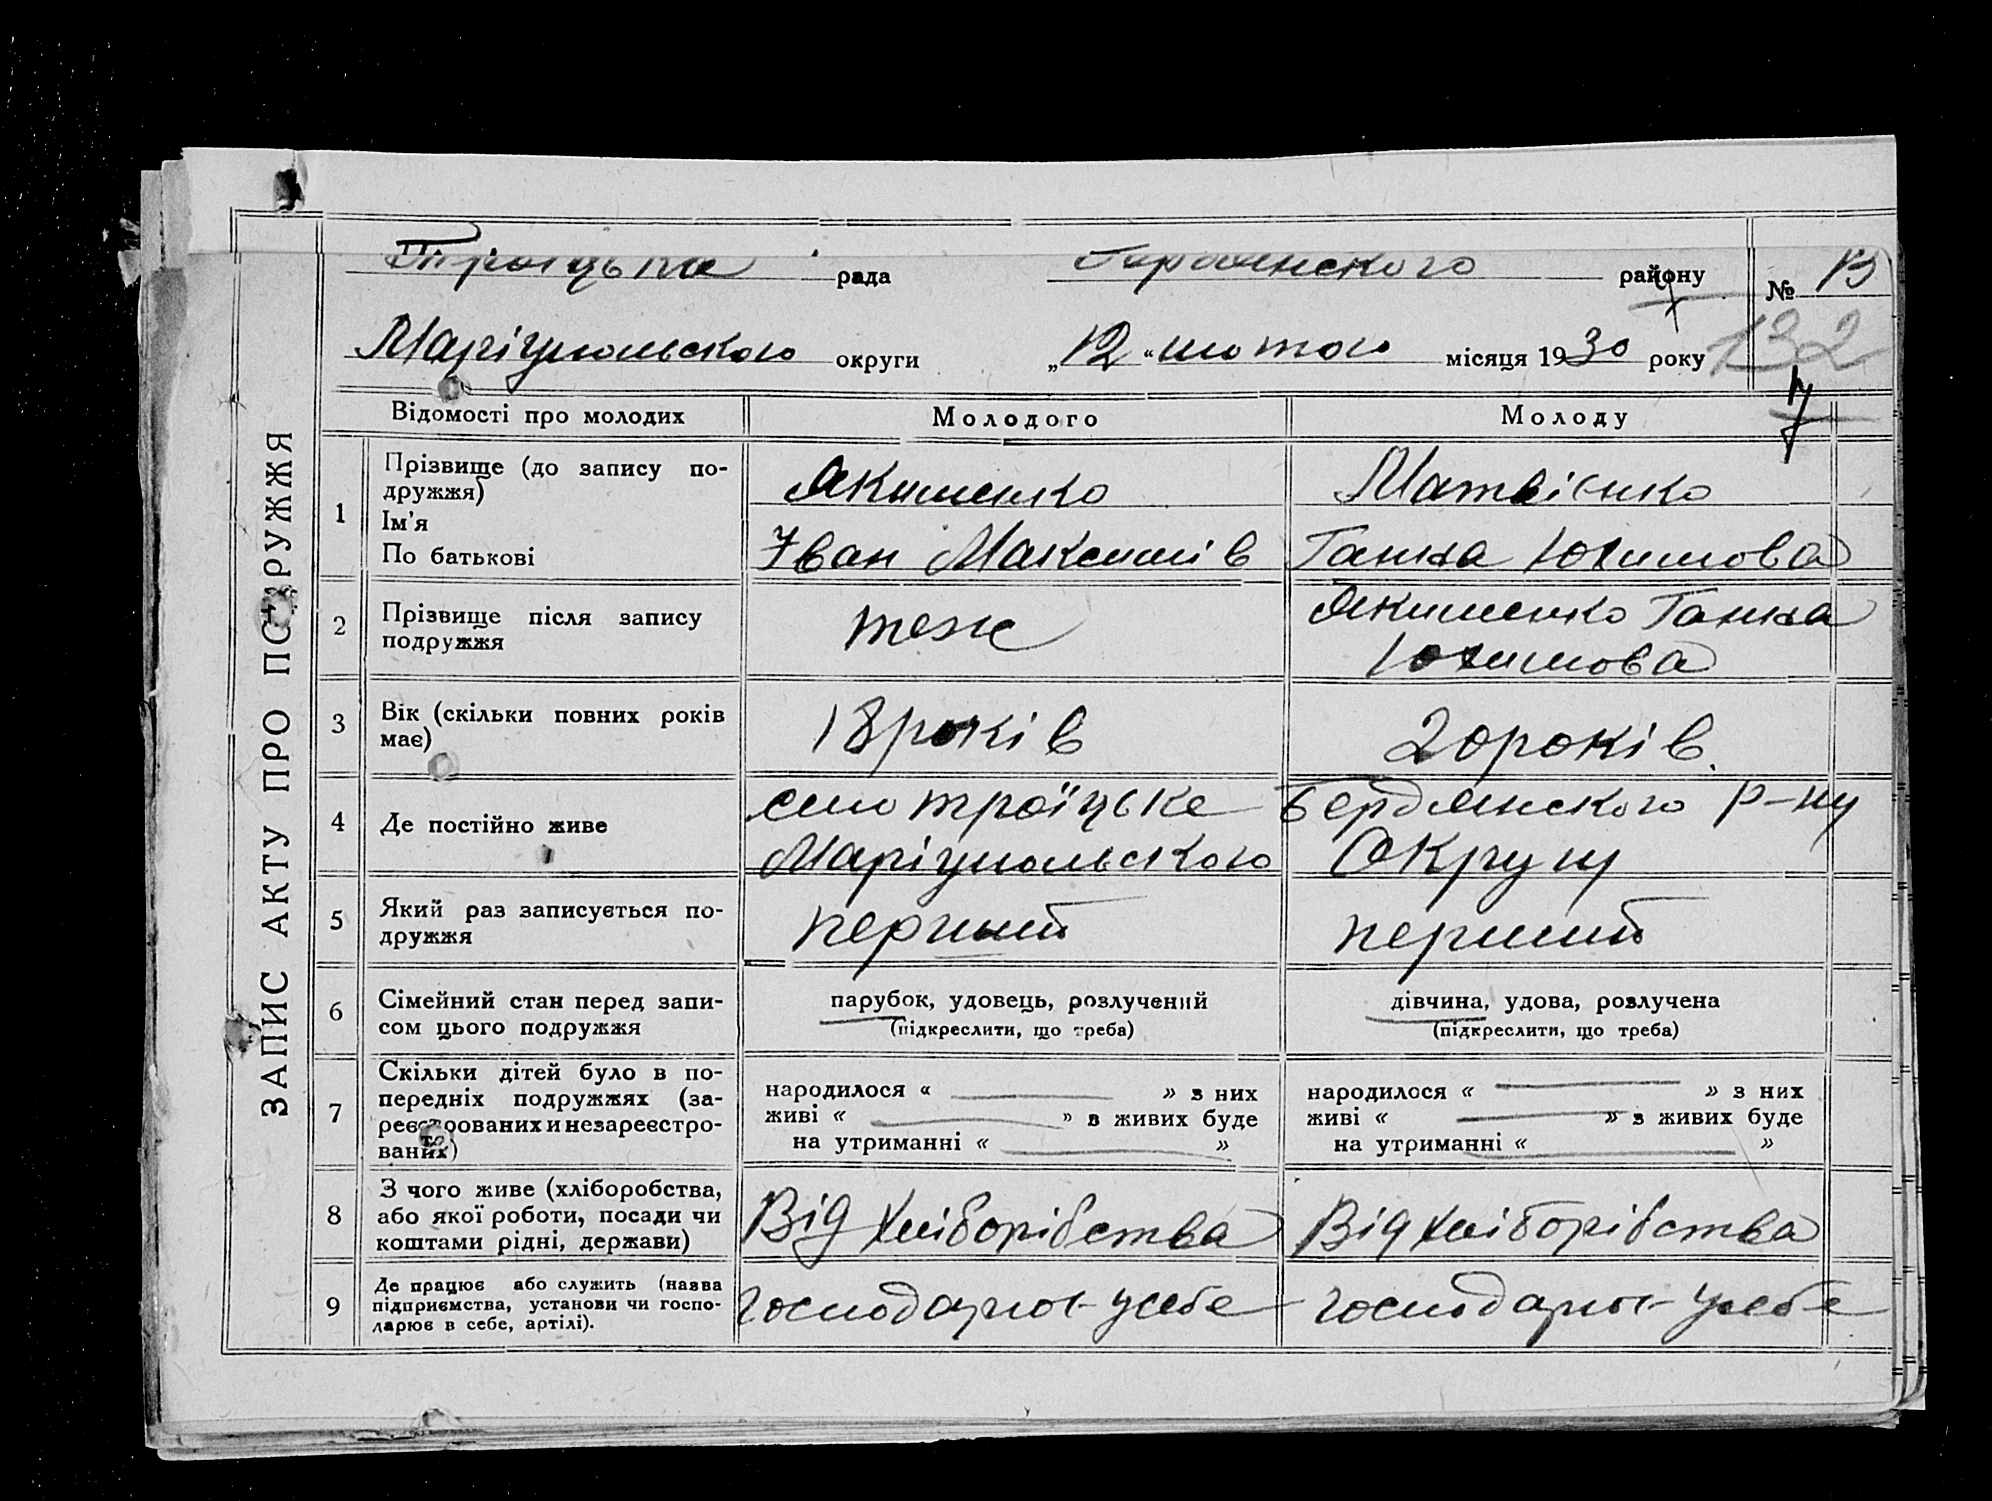 ЗАПИС АКТУ ПРО ПОДРУЖЖЯ
Троіцька рада Бердянского району № 13
Маріупольского округи „12“ лютого місяця 1930 року 132
7
Відомості про молодих Молодого Молоду
1 Прізвище (до запису по-
дружжя) Якименко Матвієнко
Ім'я
По батькові Іван Максимів Ганна Юхимова
2 Прізвище після запису
подружжя теж Якименко Ганна
Юхимова
3 Вік (скільки повних років
має) 18 років 20 років.
4 Де постійно живе село троїцьке Бердянского р-ну
Маріупольского Округи
5 Який раз записується по-
дружжя перший перший
6 Сімейний стан перед запи-
сом цього подружжя парубок, удовець, розлучений дівчина, удова, розлучена
(підкреслити, що треба) (підкреслити, що треба)
7 Скільки дітей було в по-
передніх подружжях (за-
реєстрованих и незареєстро-
ваних)
народилося « » з них народилося « » з них
живі « » з живих буде живі « » з живих буде
на утриманні « » на утриманні « »
8 З чого живе (хліборобства,
або якої роботи, посади чи
коштами рідні, держави) Від хліборібства Від хліборібства
9 Де працює або служить (назва
підприємства, установи чи госпо-
дарює в себе, артілі).
усебе усебе